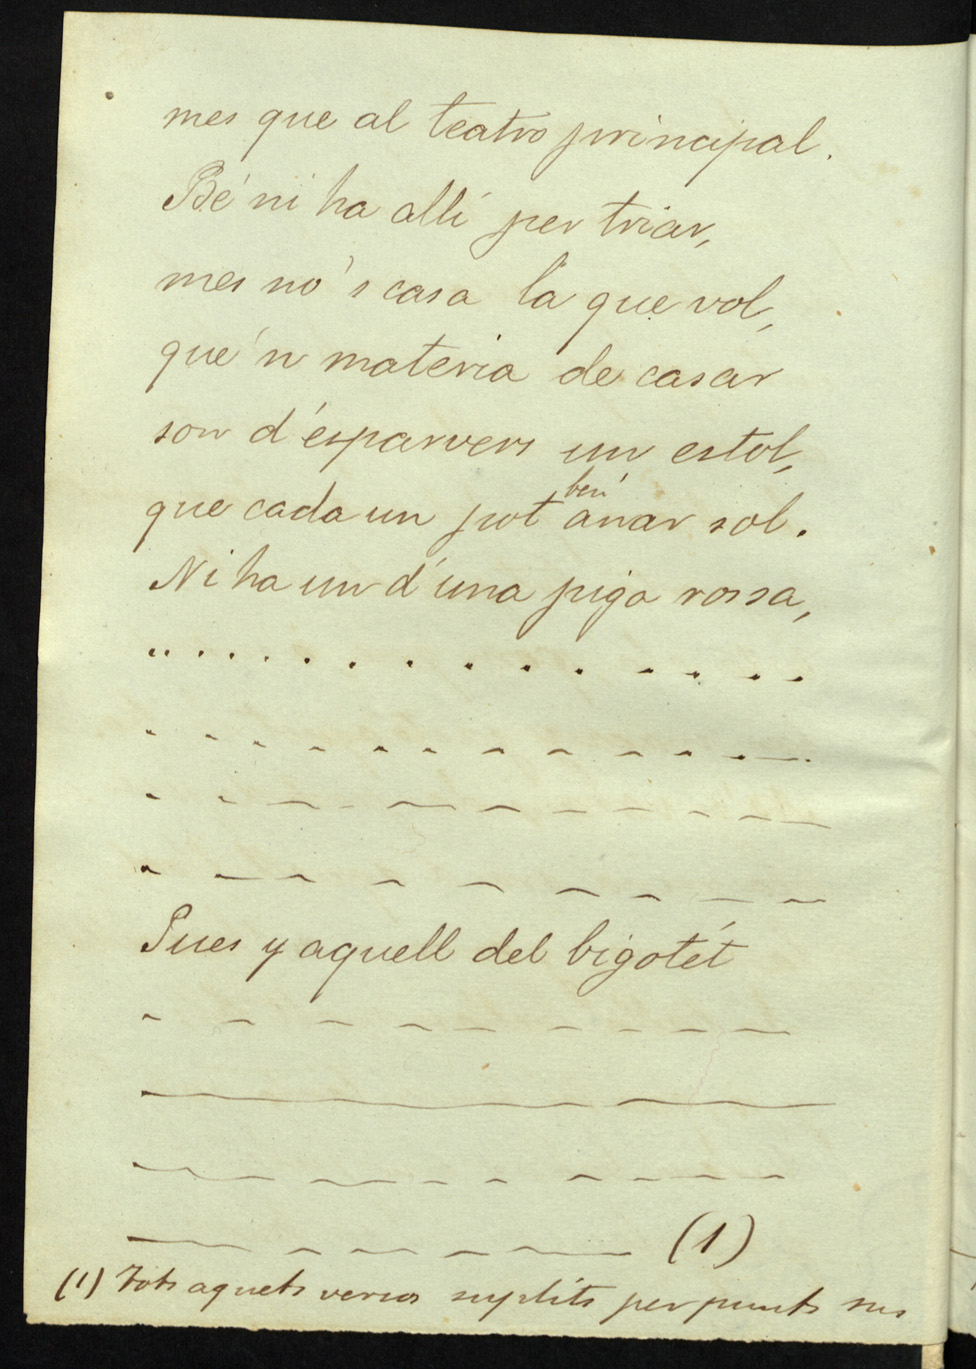 mes que al teatro principal.
Bé ni ha allí per triar,
mes no's casa la que vol,
que'n materia de casar
son d'esparvers un estol,
que cada un pot bén anar sol.
Ni ha un d'una piga rossa,
. . . . . . . . . . . . . .
- - - - - - - - - - - -
- - - - - - - - - -
- - - - - - - - -
Pues y aquell del bigotét
- - - - - - - - -
- - - - -
- - - - - - - - -
- - - - - - (1)
(1) Tots aquets versos suplits per punts